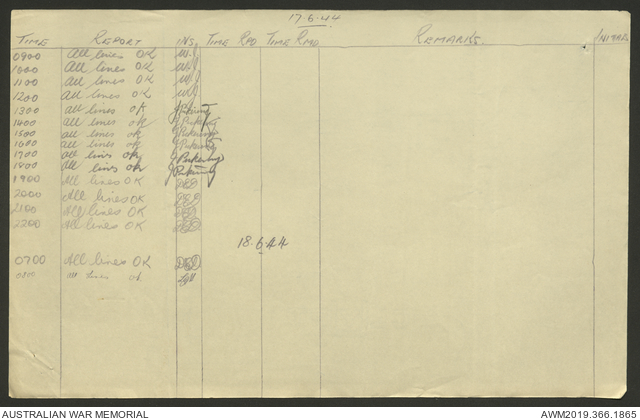 17.6.44
TIME REPORT INS. TIME RPD TIME RMD REMARKS.
0900 All lines OK W.J
1000 All lines OK W.J
1100 All lines OK W.J
1200 All lines OK W.J
1300 all lines ok J Pickering
1400 all lines ok J Pickering
1500 all lines ok J Pickering
1600 all lines ok J Pickering
1700 all lins ok J Pickering
1800 all lins ok J Pickering
1900 All lines OK
2000 All lines OK
2100 All lines OK
2200 All lines OK
18.6.44
0700 All lines OK
0800 all lines ok
AUSTRALIAN WAR MEMORIAL
AWM2019.366.1865